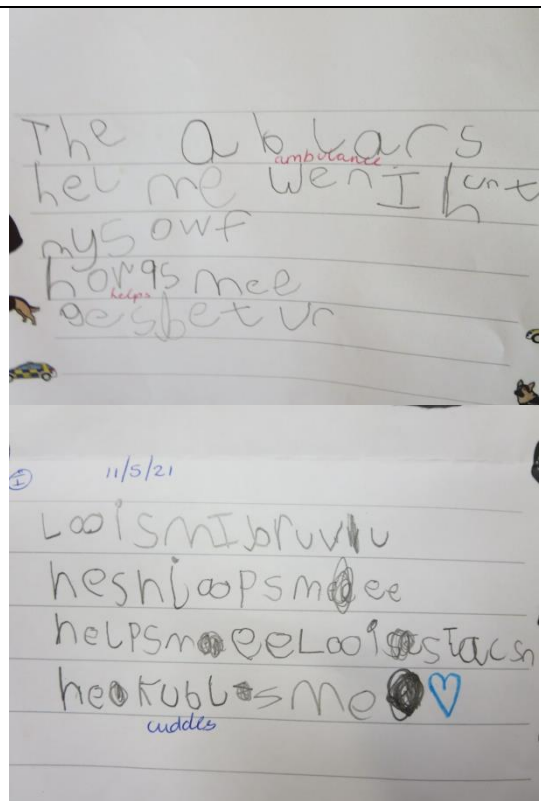 The ablars
ambulance
hel me wen I hunt
mys owf
howqs mee
helps
gesbetur
I 11/5/21
Looismibruvu
heshloopsm ee
helpsm eeLooi sTacsn
he kubl sme
cuddles